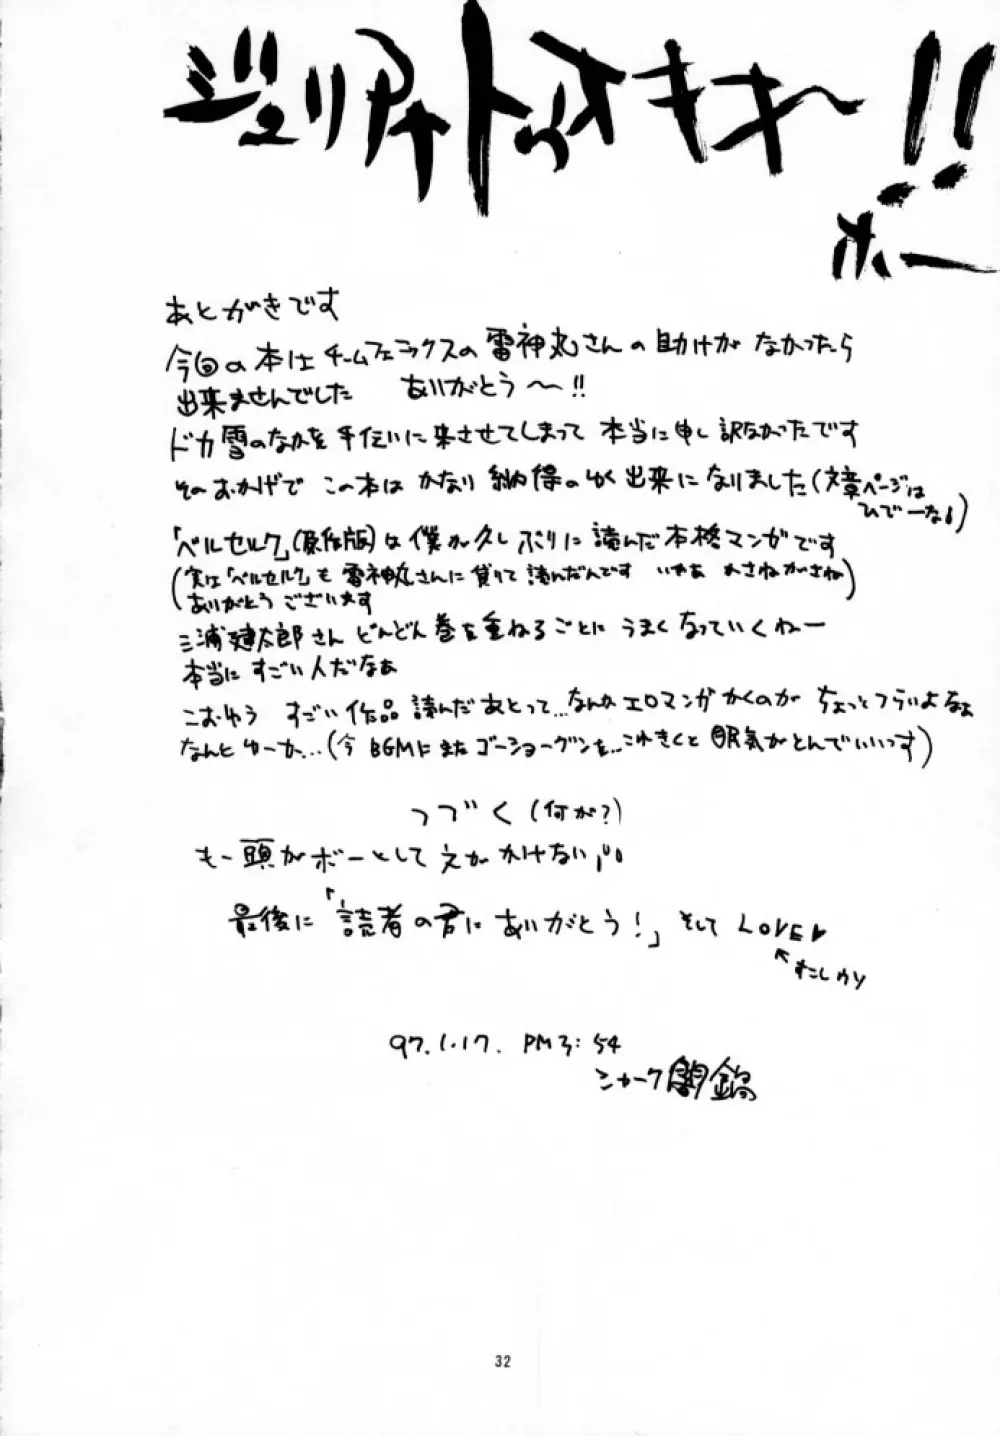 ホー
あとがきです
今回の本はチームフェニックスの雷神丸さんの助けがなかったら
出来ませんでした ありがとう〜!!
ドカ雪のなかを手伝いに来させてしまって本当に申し訳なかったです
そのおかげでこの本はかなり納得のゆく出来になりました(文章ページは
ひでーなa)
「ベルセルク」(原作版)は僕が久しぶりに読んだ本格マンガです
(実は「ベルセルク」も雷神丸さんに貸りて読んだんです いやあ かさねがさね
ありがとうございます)
三浦建太郎さん どんどん巻を重ねるごとに うまくなっていくねー
本当に すごい人だなぁ
こおゆう すごい作品 読んだあとって...なんかエロマンガかくのが ちょっとつらいよなぁ
なんとゆーか...(今 BGMにまたゴーショーグンを...これきくと眠気がとんでいいっす)
つづく(何が?)
もー頭がボーとしてえがかけない
最後に「読者の君にありがとう!」そして LOVE♥
←すこしウソ
97.1.17. PM3:54
シャーク闇鍋
32